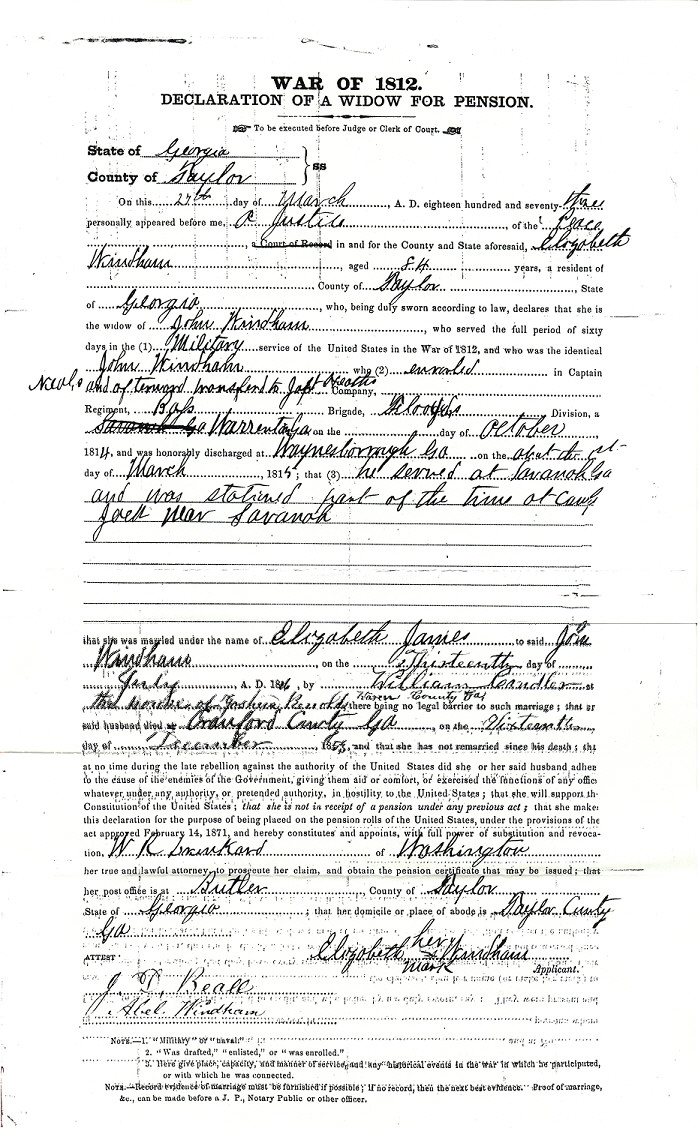 WAR OF 1812.
DECLARATION OF A WIDOW FOR PENSION.
To be executed before Judge or Clerk of Court.
State of Georgia
County of Taylor } ss
On this 27th day of March, A. D. eighteen hundred and seventy-three
personally appeared before me, A Justice of the Peace
a Court of Record in and for the County and State aforesaid, Elizabeth
Windham, aged 84 years, a resident of
County of Taylor, State
of Georgia, who, being duly sworn according to law, declares that she is
the widow of John Windham, who served the full period of sixty
days in the (1) Military service of the United States in the War of 1812, and who was the identical
John Windham who (2) enrolled in Captain
Neal,s and afterward transferd to Capt Heaths Company,
Regiment, Bass Brigade, Floyds Division, a
Savanah Ga Warrenton Ga on the day of October,
1814, and was honorably discharged at Waynesborough Ga on the about the 1st
day of March, 1815; that (3) he served at Savanah Ga
and was stationed part of the time at Camp
Jack near Savanah
that she was married under the name of Elizabeth James to said John
Windham on the Thirteenth day of
A. D. 18 , by William Candler at
Waren County Ga
there being no legal barrier to such marriage; that
said husband died at Crawford County Ga on the
day of December, 18 , and that she has not remarried since his death; tht
at no time during the late rebellion against the authority of the United States did she or her said husband adhere
to the cause of the enemies of the Government, giving them aid or comfort, or exercised the functions of any office
whatever under any authority, or pretended authority, in hostility to the United States; that she will support th
Constitution of the United States; that she is not in receipt of a pension under any previous act; that she make
this declaration for the purpose of being placed on the pension rolls of the United States, under the provisions of the
act approved February 14, 1871, and hereby constitutes and appoints, with full power of substitution and revoca-
tion, W. R of Washington
her true and lawful attorney, to prosecute her claim, and obtain the pension certificate that may be issued; that
her post office is at Butler, County of Taylor
State of Georgia; that her domicile or place of abode is Taylor County
Ga
ATTEST Elizabeth her x mark Windham
Applicant.
J. D. Beall
Abel Windham
NOTE.—1. "Military" or "naval."
2. "Was drafted," "enlisted," or "was enrolled."
3. Here give place, capacity, and manner of service, and any historical events in the war in which he participated,
or with which he was connected.
NOTE.—Record evidence of marriage must be furnished if possible; if no record, then the next best evidence. Proof of marriage,
&c., can be made before a J. P., Notary Public or other officer.